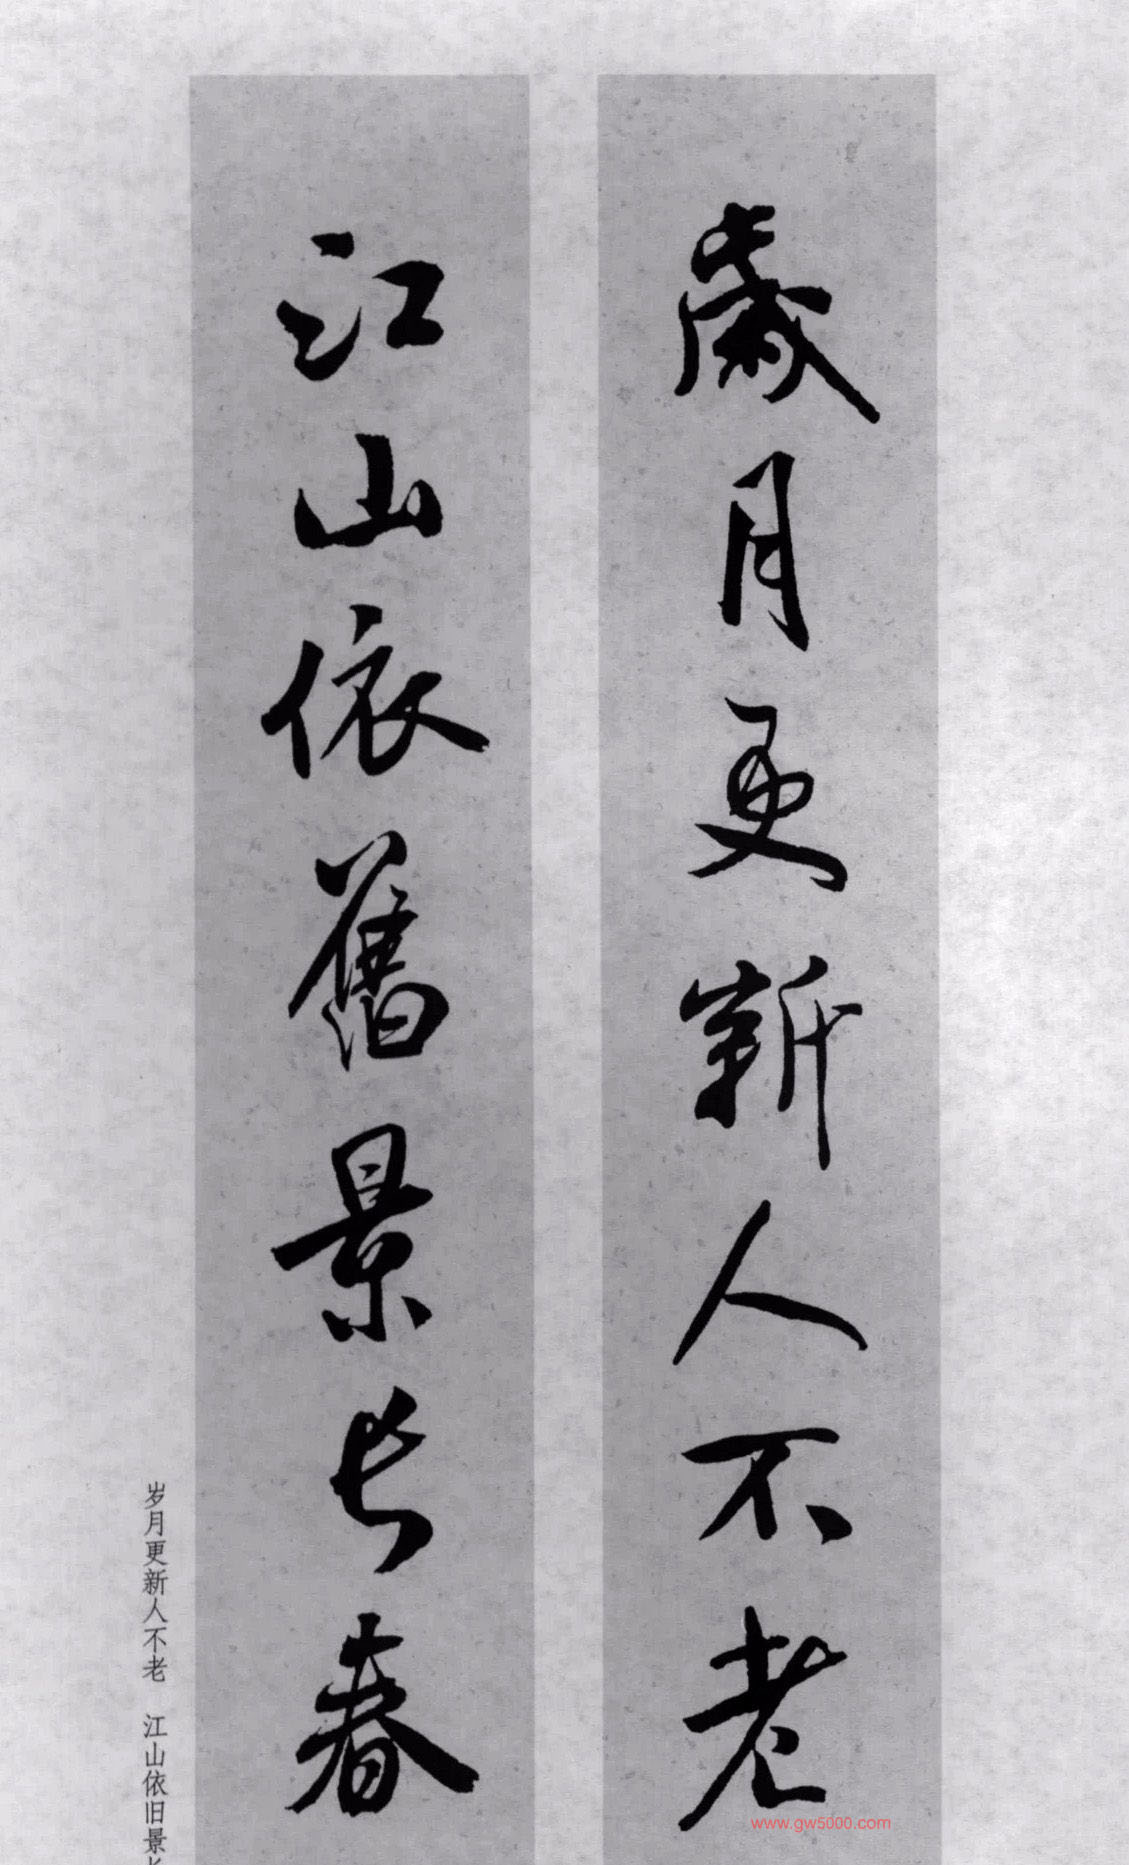 歲月更新人不老
江山依舊景長春
岁月更新人不老 江山依旧景长
www.gw5000.com